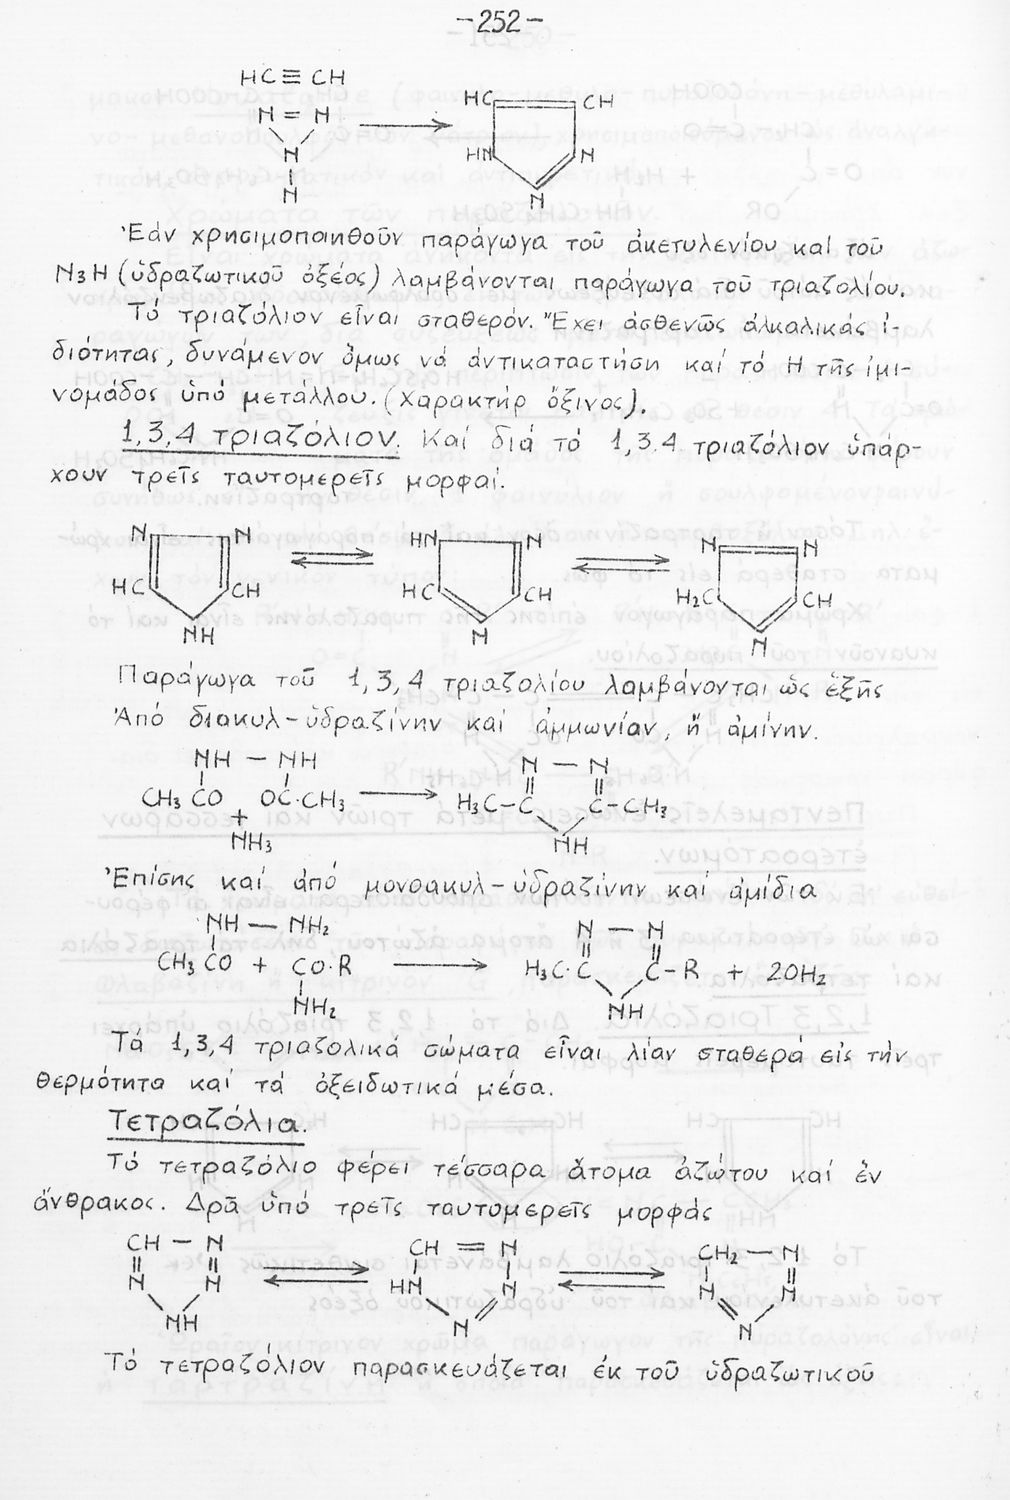 -252-
HC≡CH
N=N
N
N
HC CH
HN N
N
Ἐάν χρησιμοποιηθοῦν παράγωγα τοῦ ἀκετυλενίου καί τοῦ
N3H (ὑδραζωτικοῦ ὀξέος) λαμβάνονται παράγωγα τοῦ τριαζολίου.
Τό τριαζόλιον εἶναι σταθερόν. Ἔχει ἀσθενῶς ἀλκαλικάς ἰ-
διότητας, δυνάμενον ὅμως νά ἀντικαταστήση καί τό Η τῆς ἰμι-
νομάδος ὑπό μετάλλου. (Χαρακτηρ ὄξινος).
1,3,4 τριαζόλιον. Καί διά τό 1,3,4 τριαζόλιον ὑπάρ-
χουν τρεῖς ταυτομερεῖς μορφαί.
N N HN N N N
HC CH HC CH H2C CH
NH N N
Παράγωγα τοῦ 1,3,4 τριαζολίου λαμβάνονται ὡς ἑξῆς
Ἀπό διακυλ-ὑδραζίνην καί ἀμμωνίαν, ἤ ἀμίνην.
NH — NH N — N
CH3 CO OC·CH3 H3C-C C-CH3
+
NH3 NH
Ἐπίσης καί ἀπό μονοακυλ-ὑδραζίνην καί ἀμίδια
NH — NH2 N — N
CH3 CO + CO·R H3C·C C-R + 2OH2
NH2 NH
Τά 1,3,4 τριαζολικά σώματα εἶναι λίαν σταθερά εἰς τήν
θερμότητα καί τά ὀξειδωτικά μέσα.
Τετραζόλια.
Τό τετραζόλιο φέρει τέσσαρα ἄτομα ἀζώτου καί ἕν
ἄνθρακος. Δρᾶ ὑπό τρεῖς ταυτομερεῖς μορφάς
CH — N CH = N CH2 — N
N N HN N N N
NH N N
Τό τετραζόλιον παρασκευάζεται ἐκ τοῦ ὑδραζωτικοῦ